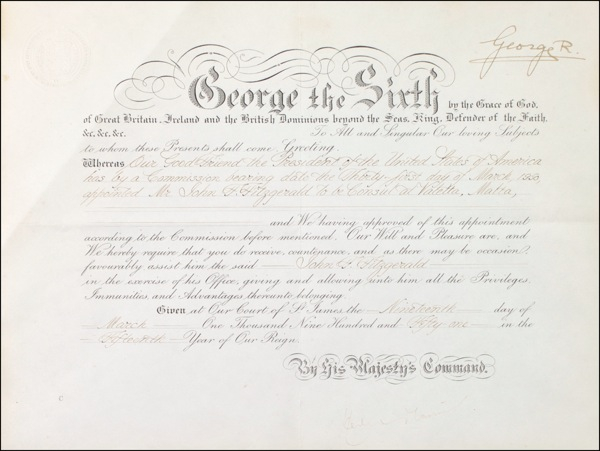 George R.
George the Sixth by the Grace of God,
of Great Britain, Ireland and the British Dominions beyond the Seas, King, Defender of the Faith,
&c, &c, &c. To All and Singular Our loving Subjects
to whom these Presents shall come Greeting.
Whereas Our Good Friend the President of the United States of America
has by a Commission bearing date the Thirty first day of March
appointed Mr John F. Fitzgerald to be Consul at Valetta, Malta,
and We having approved of this appointment
according to the Commission before mentioned, Our Will and Pleasure are, and
We hereby require, that you do receive, countenance, and, as there may be occasion,
favourably assist him the said John F. Fitzgerald
in the exercise of his Office, giving and allowing unto him all the Privileges,
Immunities, and Advantages thereunto belonging.
Given at Our Court of St James, the Nineteenth day of
March One Thousand Nine Hundred and Fifty one in the
Fifteenth Year of Our Reign.
By His Majesty's Command.
C